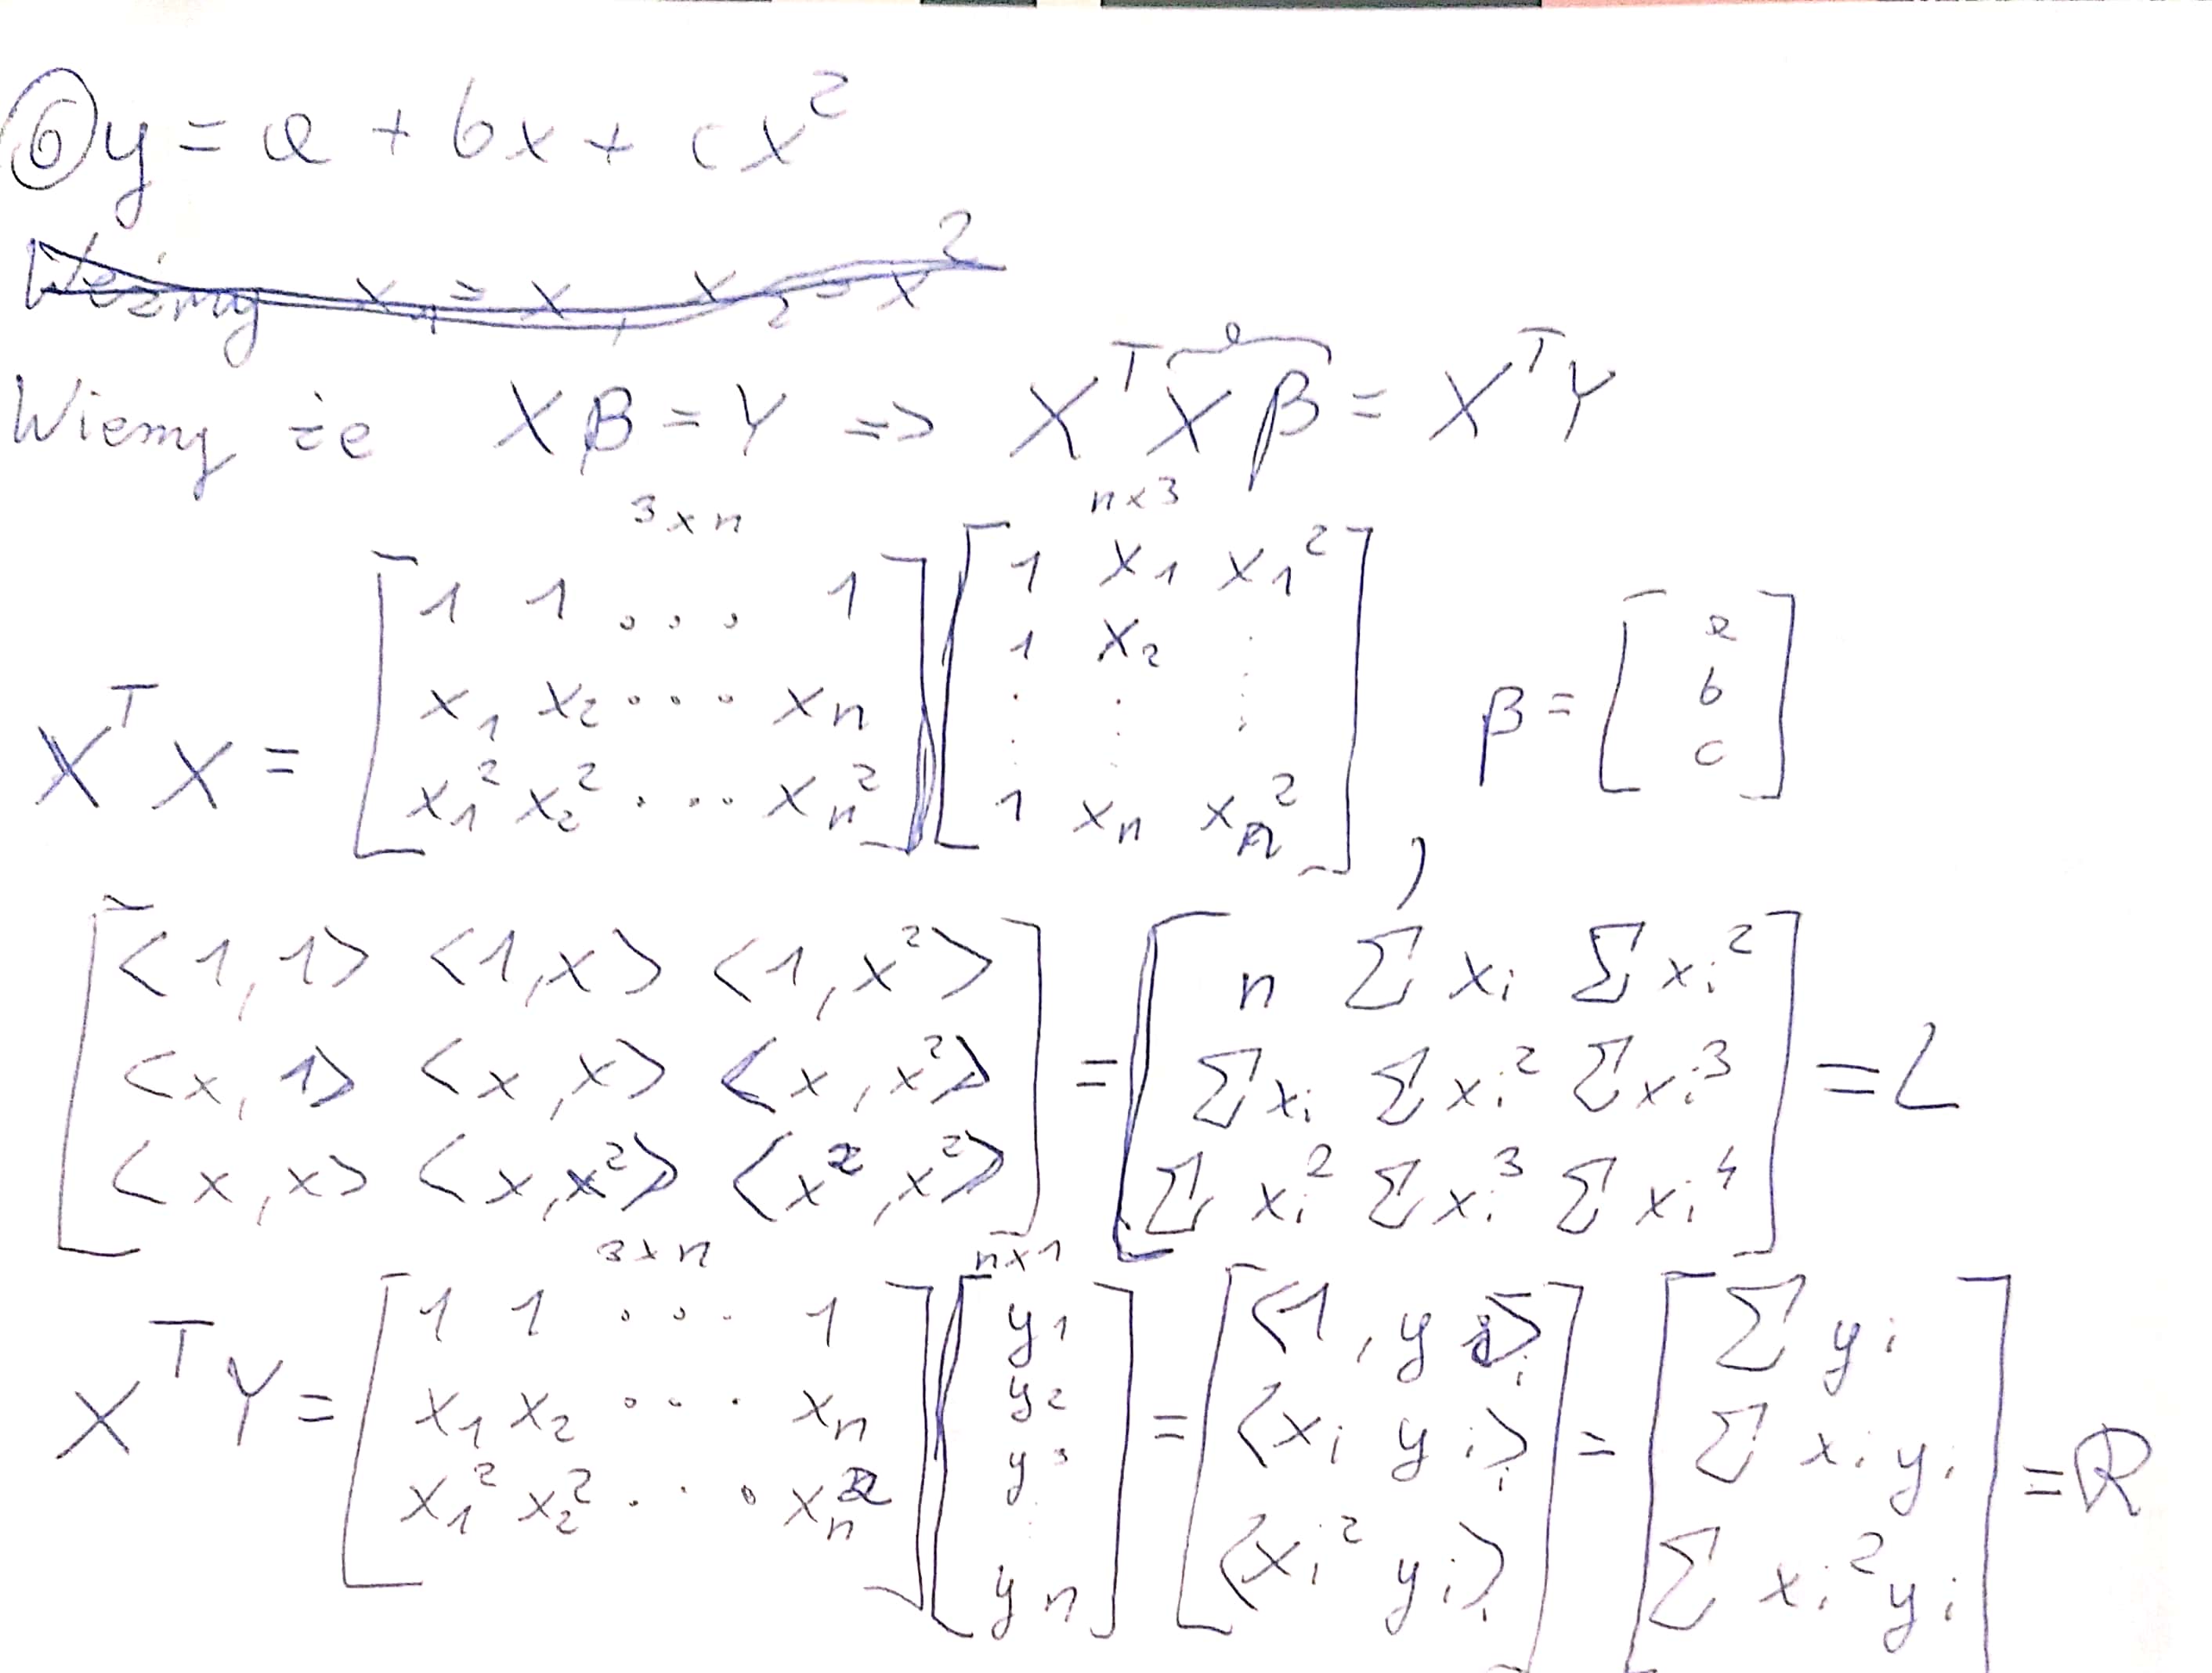 ⑥ y = a + bx + cx²
Weźmy x₁ = x, x₂ = x²
Wiemy że Xβ = Y => XᵀXβ = XᵀY
3×n n×3
XᵀX = [1 1 ... 1; x₁ x₂ ... xₙ; x₁² x₂² ... xₙ²] [1 x₁ x₁²; 1 x₂ ⋮; ⋮ ⋮ ⋮; 1 xₙ xₙ²], β = [a; b; c]
[<1,1> <1,x> <1,x²>; <x,1> <x,x> <x,x²>; <x,x> <x,x²> <x²,x²>] = [n Σxᵢ Σxᵢ²; Σxᵢ Σxᵢ² Σxᵢ³; Σxᵢ² Σxᵢ³ Σxᵢ⁴] = L
3×n n×1
XᵀY = [1 1 ... 1; x₁ x₂ ... xₙ; x₁² x₂² ... xₙ²] [y₁; y₂; y₃; ⋮; yₙ] = [<1, yᵢ>; <xᵢ yᵢ>; <xᵢ² yᵢ>] = [Σyᵢ; Σxᵢyᵢ; Σxᵢ²yᵢ] = R